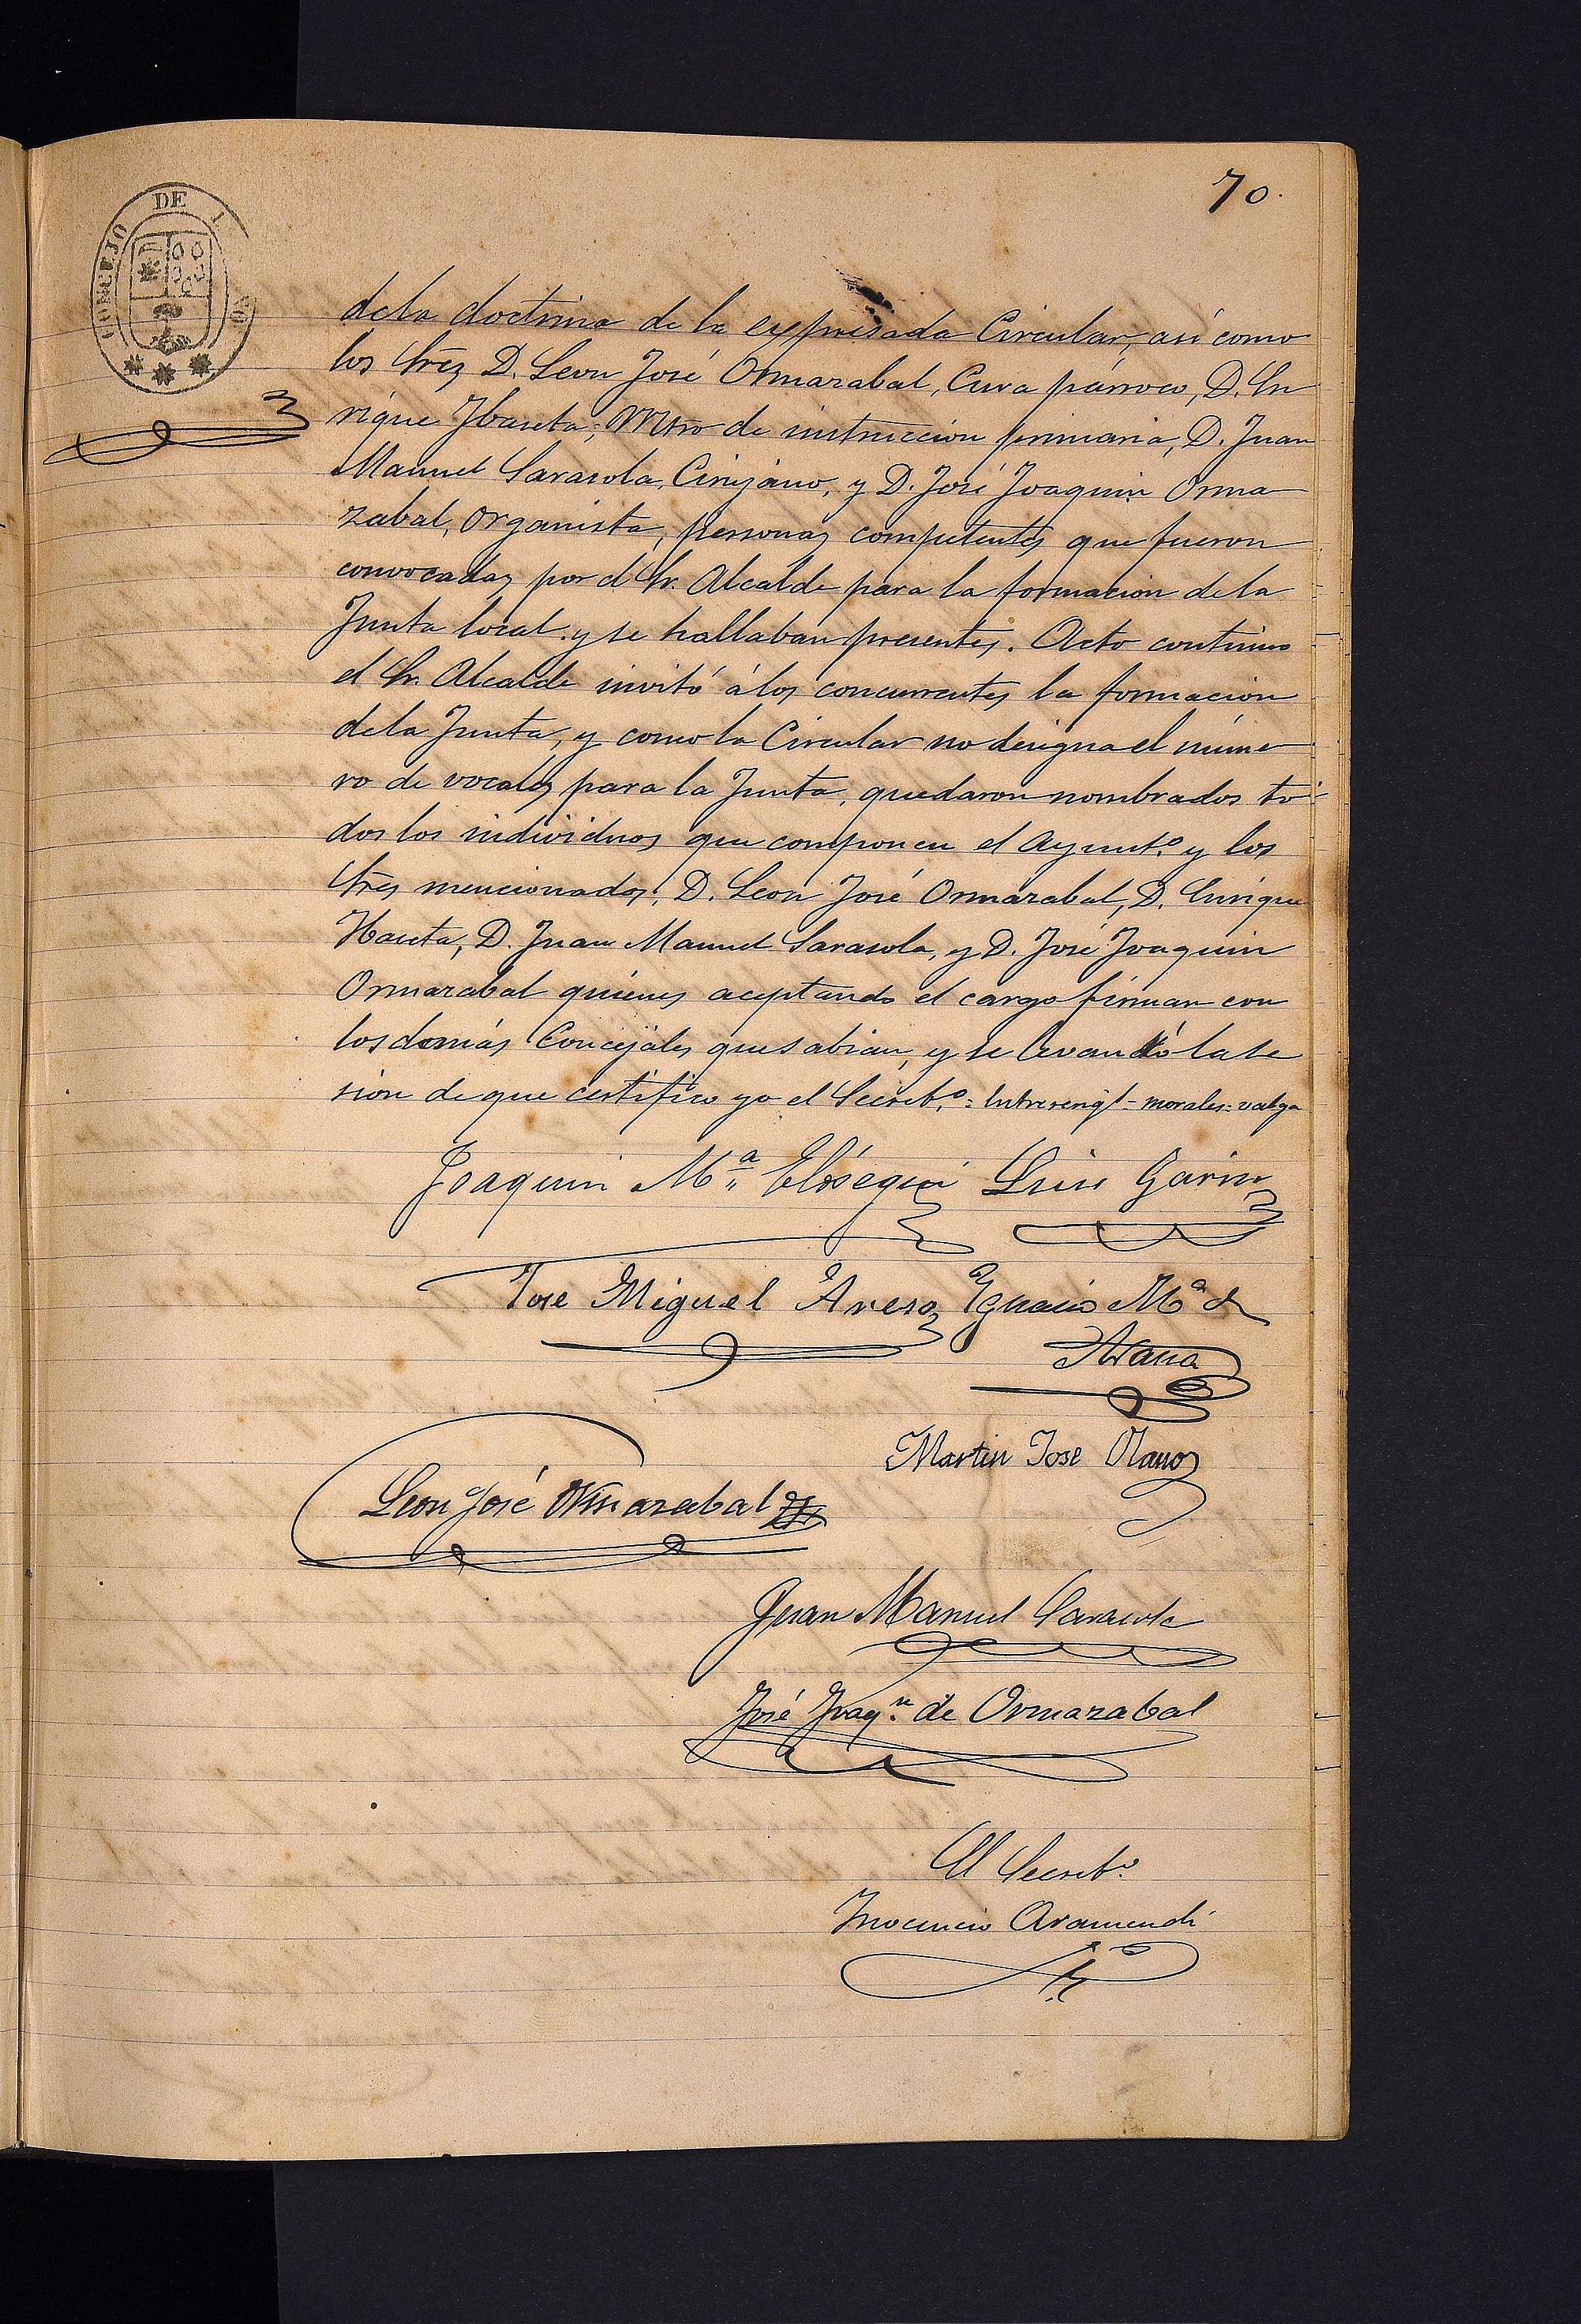 70.
CONCEJO DE
dela doctrina de la expresada Circular, así como
los Srẽs D. Leon José Ormazabal, Cura párroco, D. En
rique Ybaceta, Mtro de instruccion primaria, D. Juan
Manuel Sarasola, Cirujano, y D. José Joaquin Orma
zabal, Organista, personas competentes que fueron
convocadas por el Sr. Alcalde para la formacion dela
Junta local y se hallaban presentes. Acto continuo
el Sr. Alcalde invitó á los concurrentes la formacion
dela Junta, y como la Circular no designa el núme
ro de vocales para la Junta, quedaron nombrados to-
dos los individuos que componen el Ayunt.º y los
Srẽs mencionados, D. Leon José Ormazabal, D. Enrique
Ybaceta, D. Juan Manuel Sarasola, y D. José Joaquin
Ormazabal quiénes aceptando el cargo firman con
los demás Concejáles que sabian, y se levantó la se
sion de que certifico yo el Secret.º = Entrerengl = morales = valga
Joaquin Mª Elósegui Luis Garin
Jose Miguel Areso Ygnacio Mª de
Arana
Martin Jose Olano
Leon José Ormazabal
Juan Manuel Sarasola
José Joaq.n de Ormazabal
El Secret.º
Inocencio Aramendi